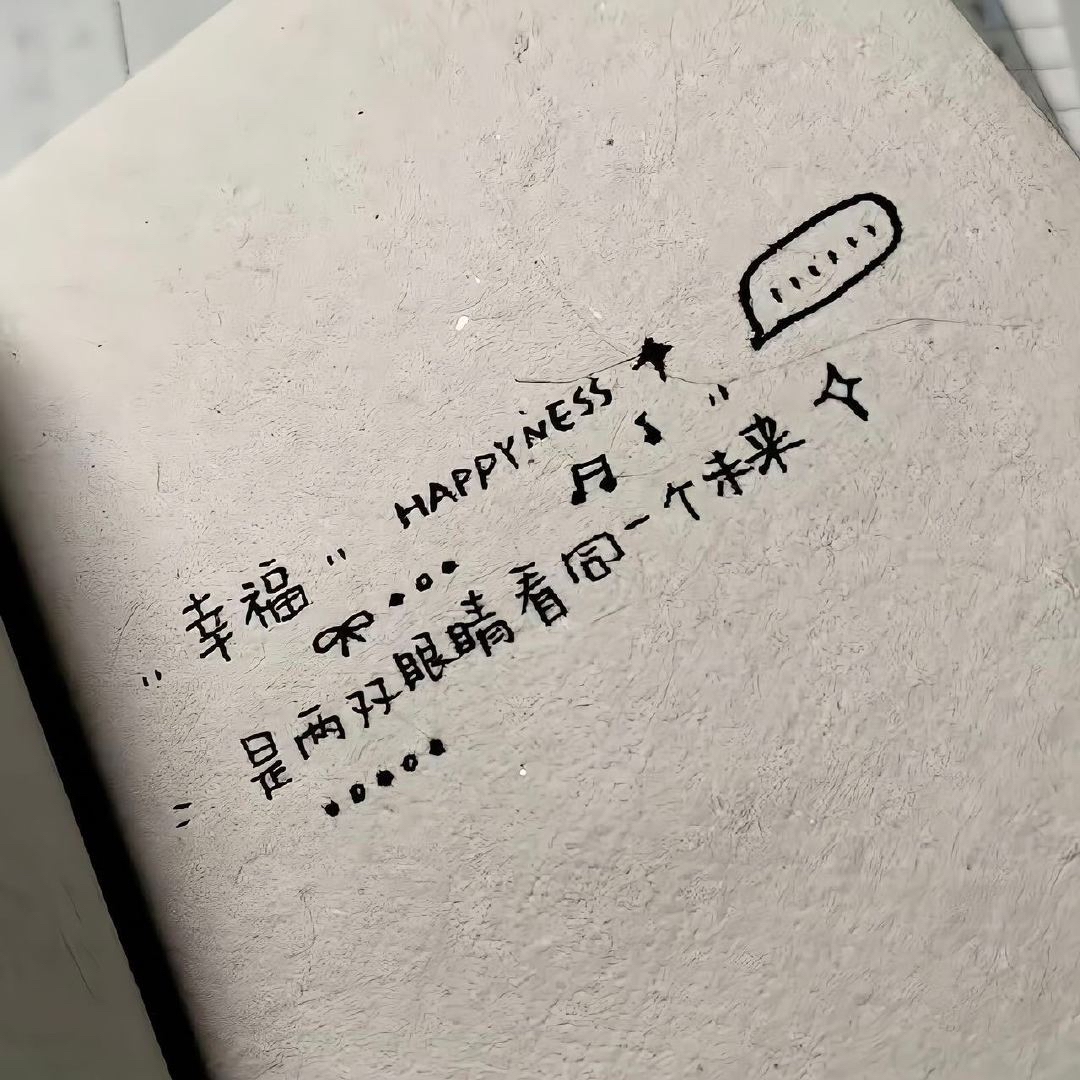 "幸福" HAPPYNESS
"是两双眼睛看同一个未来"